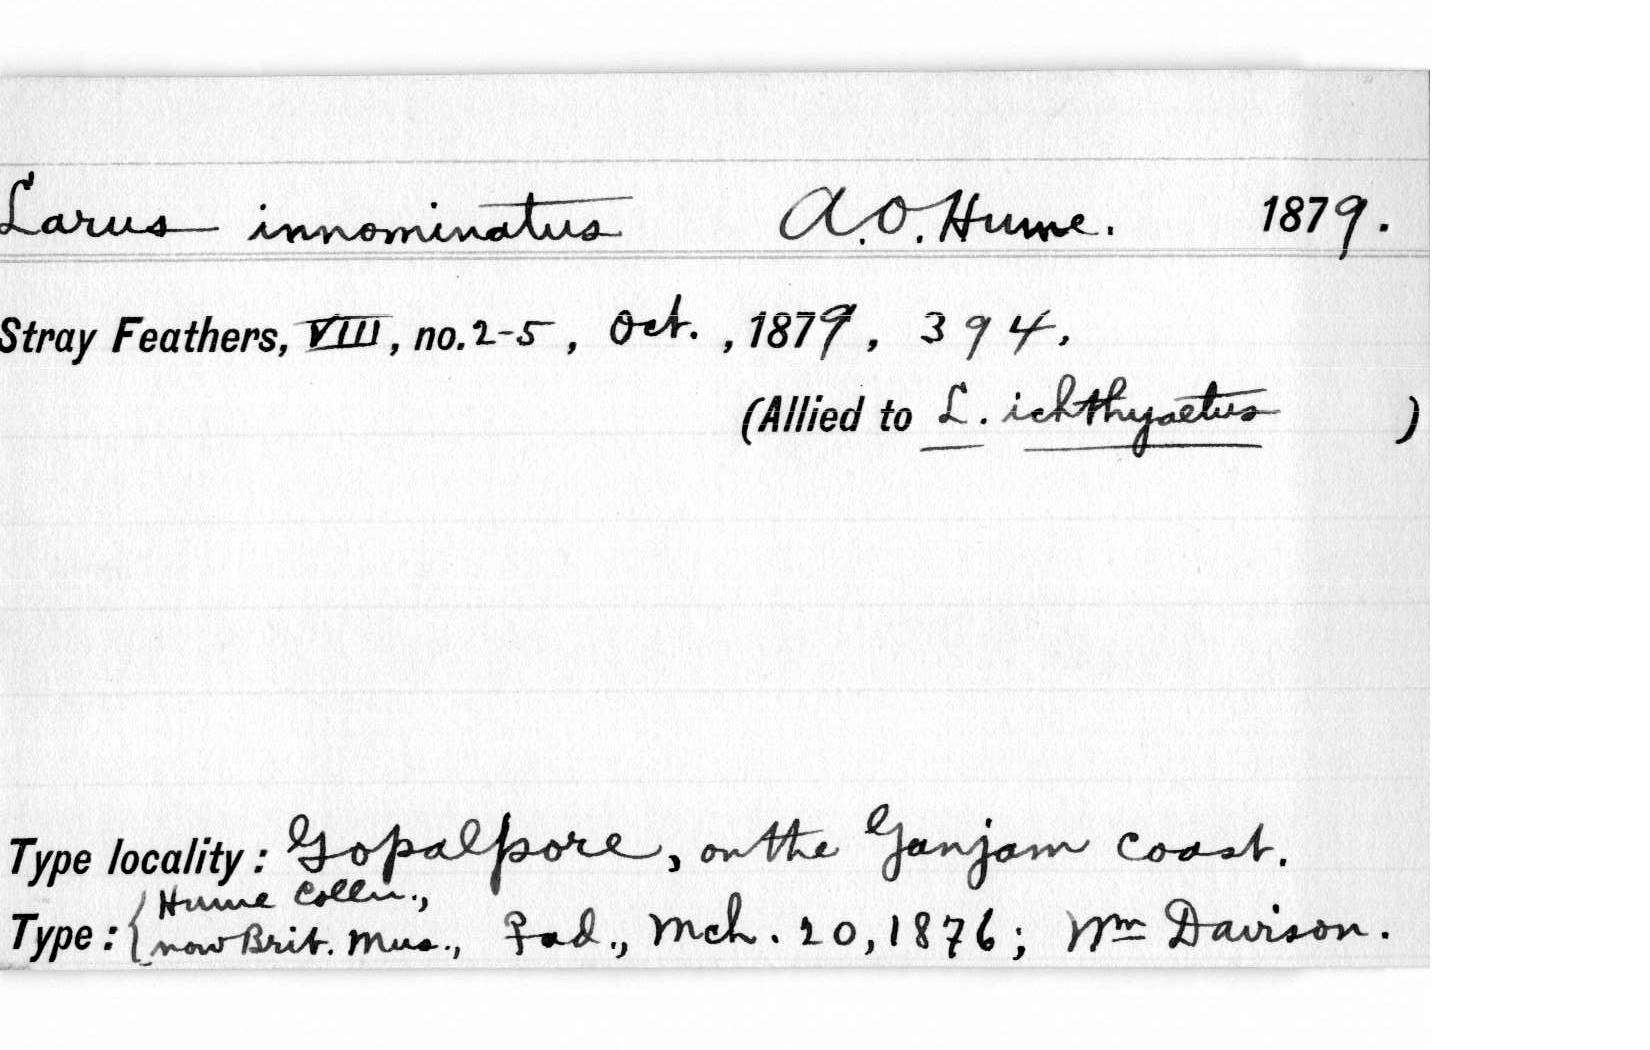 Larus innominatus A.O. Hume. 1879.
Stray Feathers, VIII, no. 2-5, Oct., 1879, 394,
(Allied to L. ichthyaetus )
Type locality: Gopalpore, on the Ganjam coast.
Type: { Hume Colln.,
now Brit. Mus., ♀ ad., Mch. 20, 1876; Wm Davison.